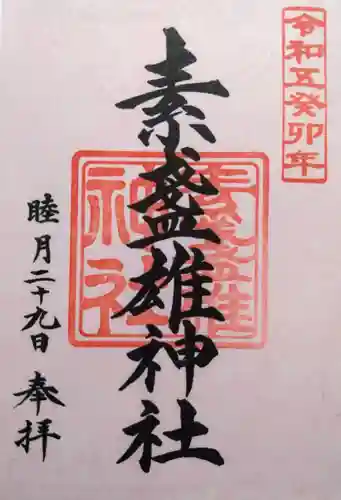 令和五癸卯年
素盞雄神社
素盞雄
神社
睦月二十九日
奉拝